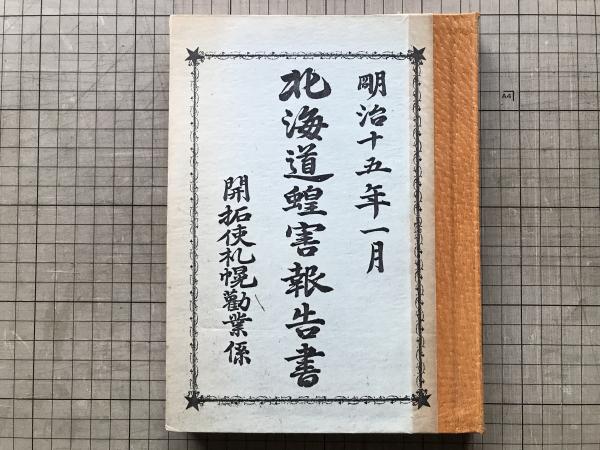 明治十五年一月
北海道蝗害報告書
開拓使札幌勧業係
A4